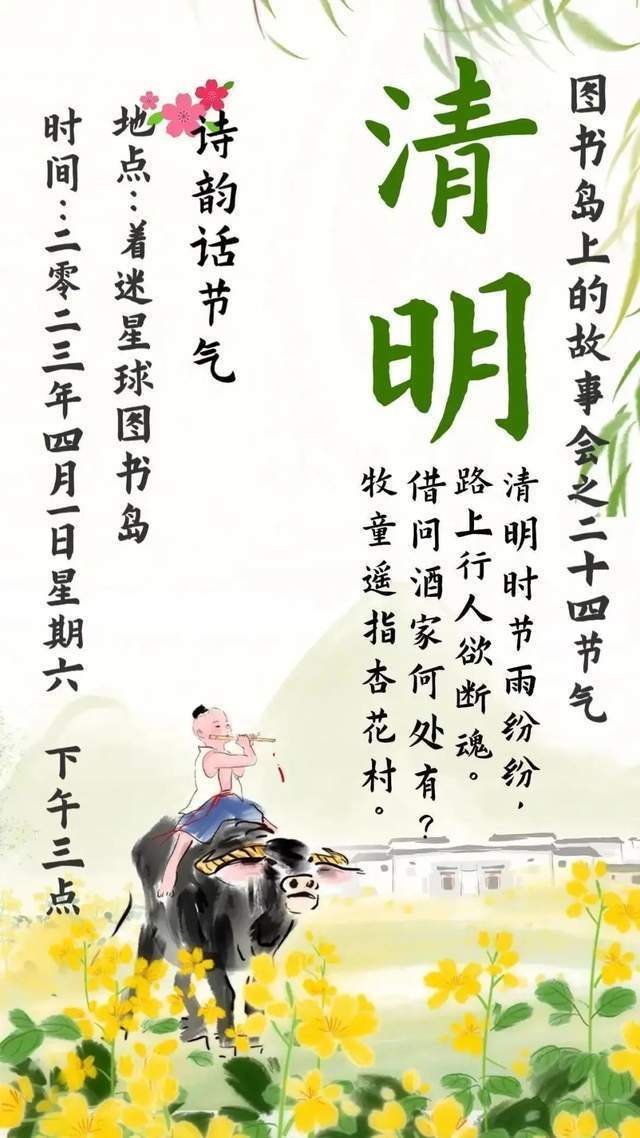 图书岛上的故事会之二十四节气
清明
清明时节雨纷纷，
路上行人欲断魂。
借问酒家何处有？
牧童遥指杏花村。
诗韵话节气
地点：着迷星球图书岛
时间：二零二三年四月一日星期六 下午三点